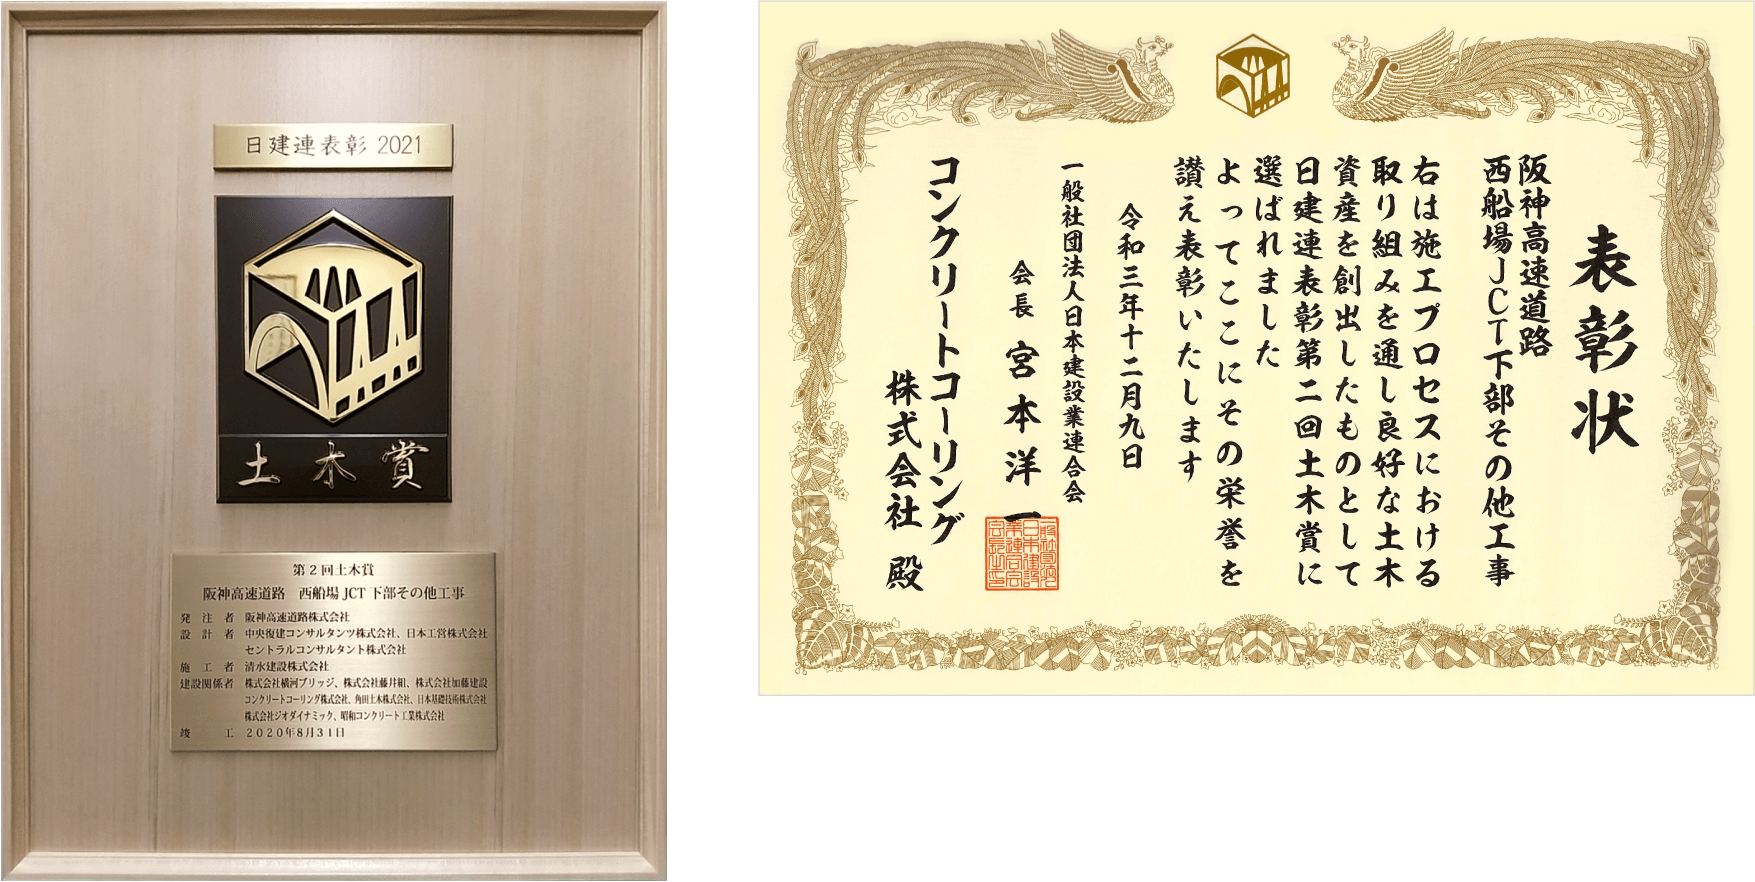 日建連表彰 2021
土木賞
第2回土木賞
阪神高速道路　西船場JCT下部その他工事
発注者　阪神高速道路株式会社
設計者　中央復建コンサルタンツ株式会社、日本工営株式会社
セントラルコンサルタント株式会社
施工者　清水建設株式会社
建設関係者　株式会社横河ブリッジ、株式会社藤井組、株式会社加藤建設
コンクリートコーリング株式会社、角田土木株式会社、日本基礎技術株式会社
株式会社ジオダイナミック、昭和コンクリート工業株式会社
竣工　2020年8月31日
表彰状
阪神高速道路
西船場JCT下部その他工事
右は施工プロセスにおける
取り組みを通し良好な土木
資産を創出したものとして
日建連表彰第二回土木賞に
選ばれました
よってここにその栄誉を
讃え表彰いたします
令和三年十二月九日
一般社団法人日本建設業連合会
会長　宮本洋一
コンクリートコーリング
株式会社　殿